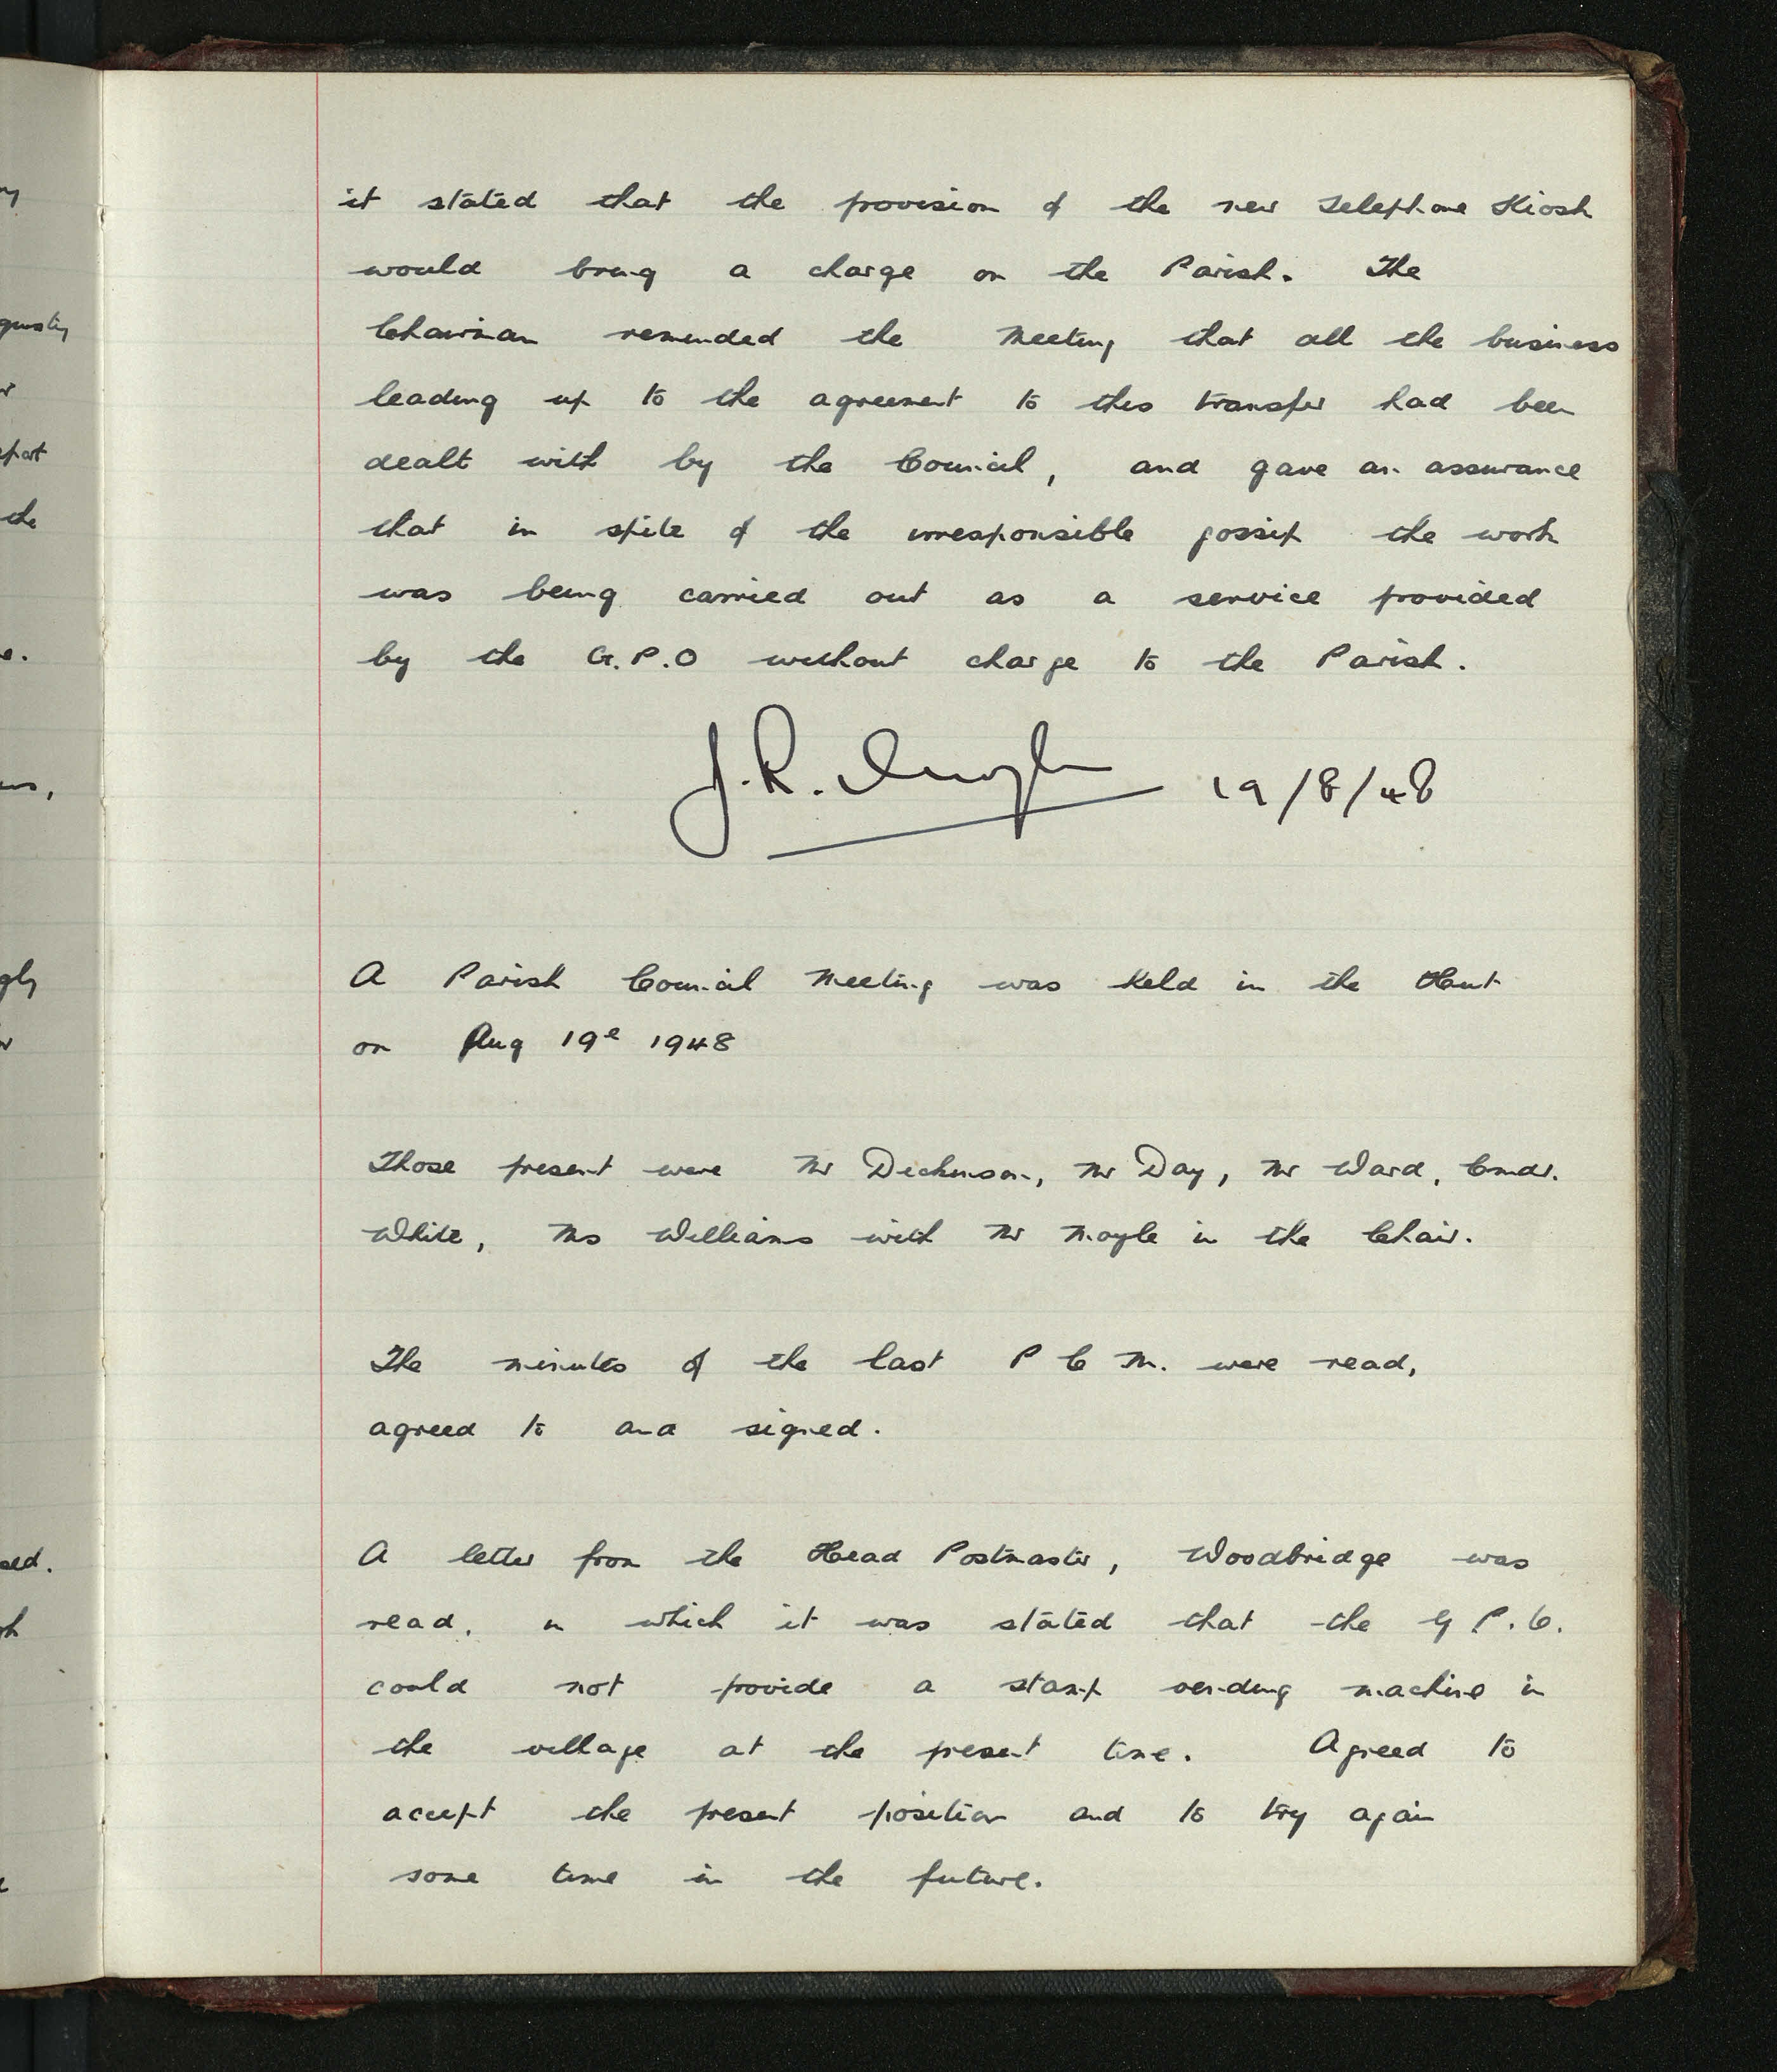 it stated that the provision of the new Telephone Kiosk
would bring a charge on the Parish. The
Chairman reminded the Meeting that all the business
leading up to the agreement to this transfer had been
dealt with by the Council, and gave an assurance
that in spite of the irresponsible gossip the work
was being carried out as a service provided
by the G.P.O without charge to the Parish.
J.R. Moyle 19/8/48
A Parish Council Meeting was held in the Hut
on Aug 19e 1948
Those present were Mr Dickinson, Mr Day, Mr Ward, Cmdr.
White, Mrs Williams with Mr Moyle in the Chair.
The minutes of the last P C M. were read,
agreed to and signed.
A letter from the Head Postmaster, Woodbridge was
read, in which it was stated that the G P.O.
could not provide a stamp vending machine in
the village at the present time. Agreed to
accept the present position and to try again
some time in the future.